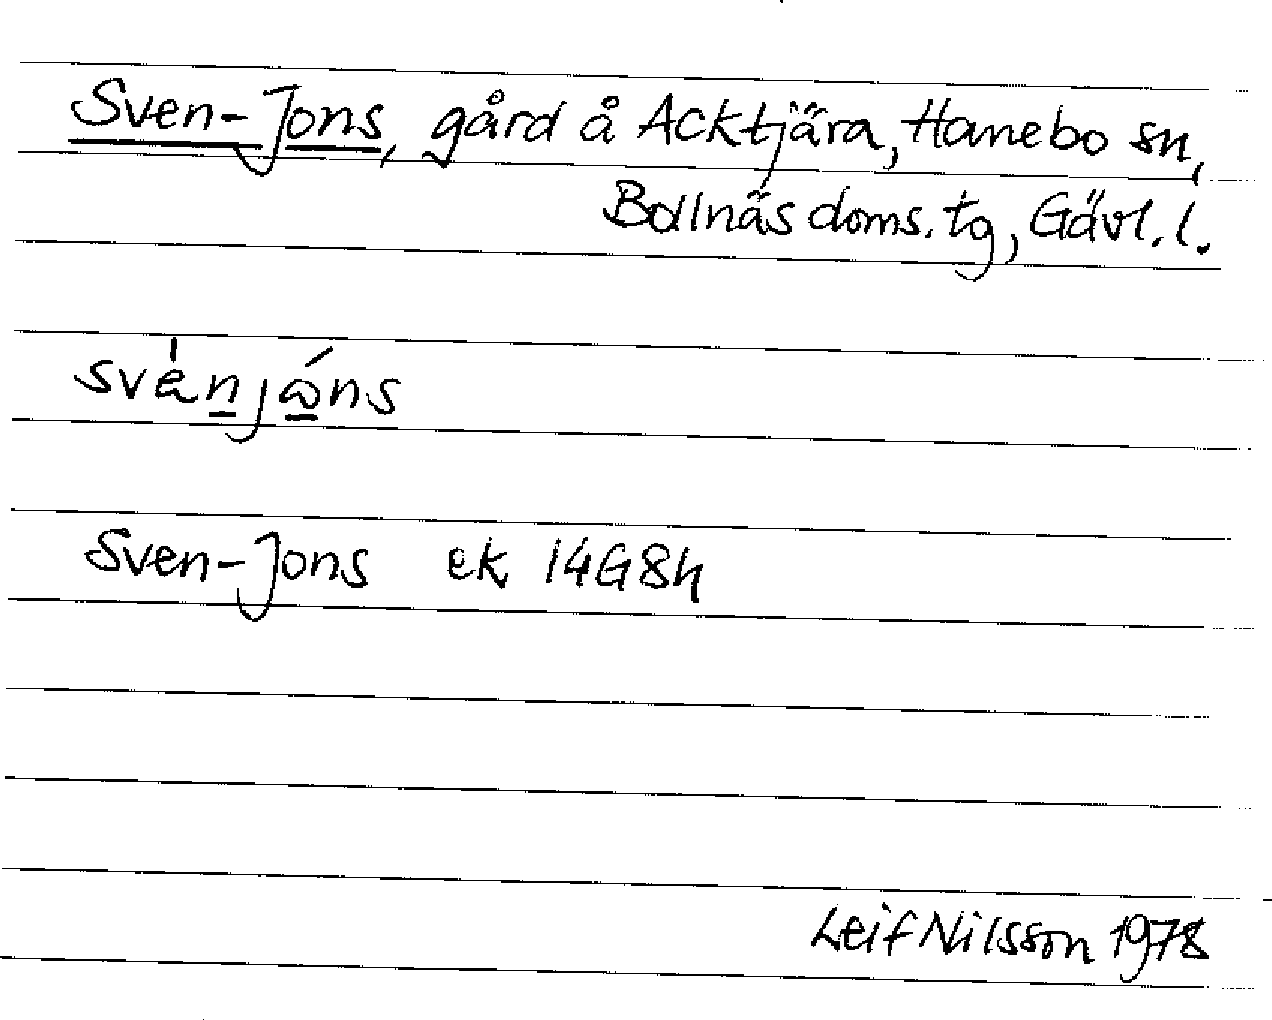 Sven-Jons, gård å Acktjära, Hanebo sn,
Bollnäs doms. tg, Gävl. l.
Sven-Jons ek 14G8h
Leif Nilsson 1978